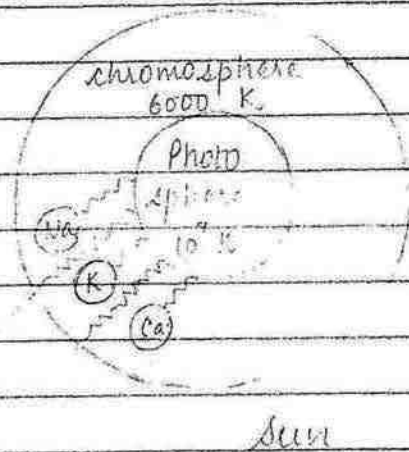 chromosphere
6000 K
Photo
sphere
Na
10⁷ K
K
Ca
Sun